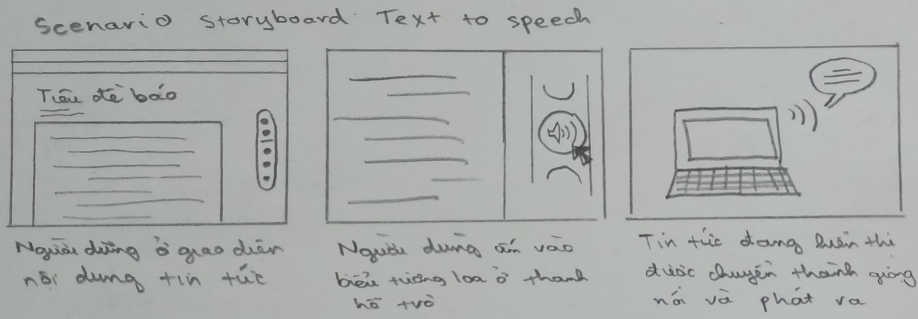 Scenario Storyboard: Text to speech
Tiêu đề báo
Người dùng ở giao diện
nội dung tin tức
Người dùng ấn vào
biểu tượng loa ở thanh
hỗ trợ
Tin tức đang hiển thị
được chuyển thành giọng
nói và phát ra